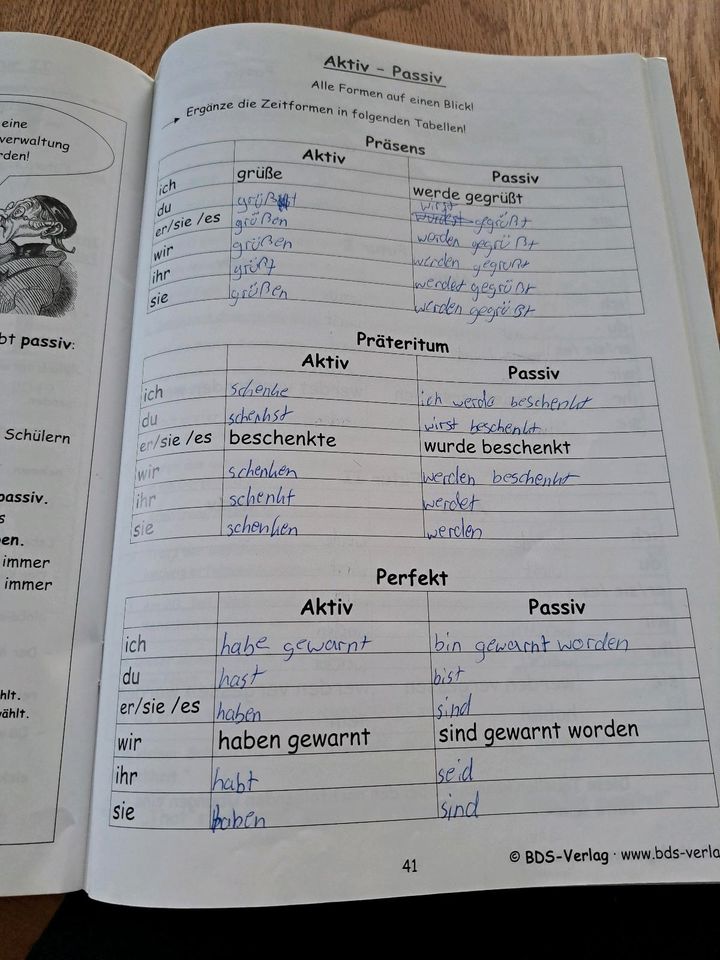 eine
verwaltung
rden!
bt passiv:
Schülern
passiv.
s
en.
immer
immer
hlt.
wählt.
Aktiv – Passiv
Alle Formen auf einen Blick!
Ergänze die Zeitformen in folgenden Tabellen!
Präsens
Aktiv Passiv
ich grüße werde gegrüßt
du grüßt wirst gegrüßt
er/sie /es größen werden gegrüßt
wir größen werden gegrüßt
ihr grüßt werdet gegrüßt
sie größen werden gegrüßt
Präteritum
Aktiv Passiv
ich schenke ich werde beschenkt
du schenkst wirst beschenkt
er/sie /es beschenkte wurde beschenkt
wir schenken werden beschenkt
ihr schenkt werdet
sie schenken werden
Perfekt
Aktiv Passiv
ich habe gewarnt bin gewarnt worden
du hast bist
er/sie /es haben sind
wir haben gewarnt sind gewarnt worden
ihr habt seid
sie haben sind
41
© BDS-Verlag · www.bds-verla